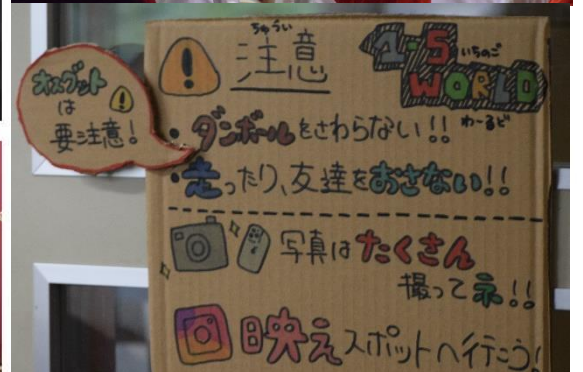 オスグット
は
要注意!
ちゅうい
注意
1-5 いちのご
WORLD
わーるど
・ダンボールをさわらない!!
・走ったり、友達をおさない!!
写真はたくさん
撮ってネ!!
映えスポットへ行こう!